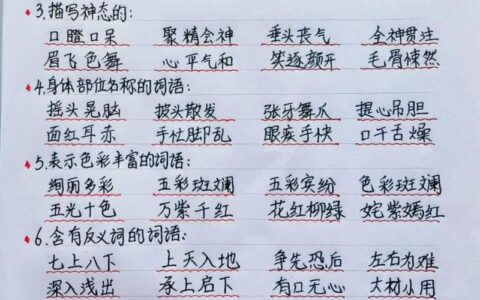 3.描写神态的:
口瞪口呆 聚精会神 垂头丧气 全神贯注
眉飞色舞 心平气和 笑逐颜开 毛骨悚然
4.身体部位名称的词语:
摇头晃脑 披头散发 张牙舞爪 提心吊胆
面红耳赤 手忙脚乱 眼疾手快 口干舌燥
5.表示色彩丰富的词语:
绚丽多彩 五彩斑斓 五彩宾纷 色彩斑斓
五光十色 万紫千红 花红柳绿 姹紫嫣红
6.含有反义词的词语:
七上八下 上天入地 争先恐后 左右为难
深入浅出 承上启下 有口无心 大材小用